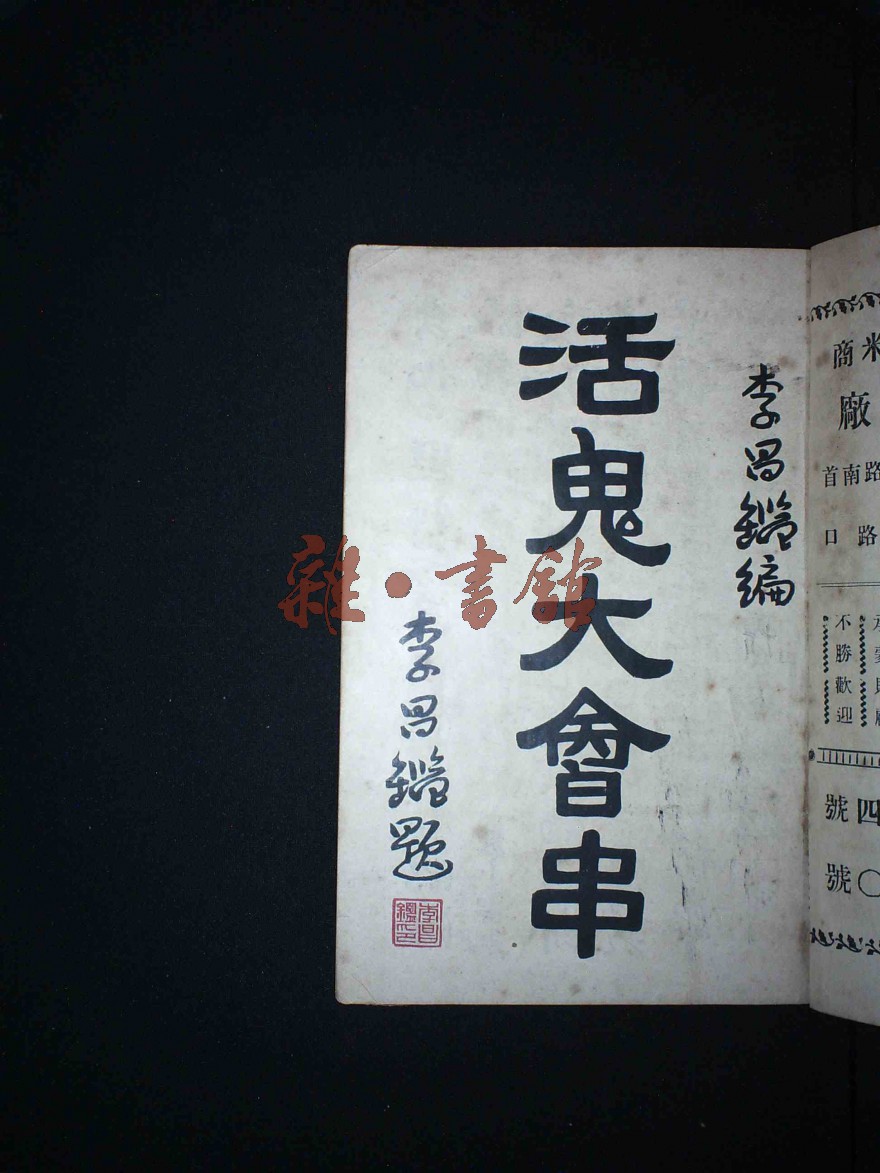 李昌鑑編
活鬼大會串
李昌鑑題
李昌鑑印
雜·書館
米
商
廠
路南首
路口
不勝歡迎
四號
〇號